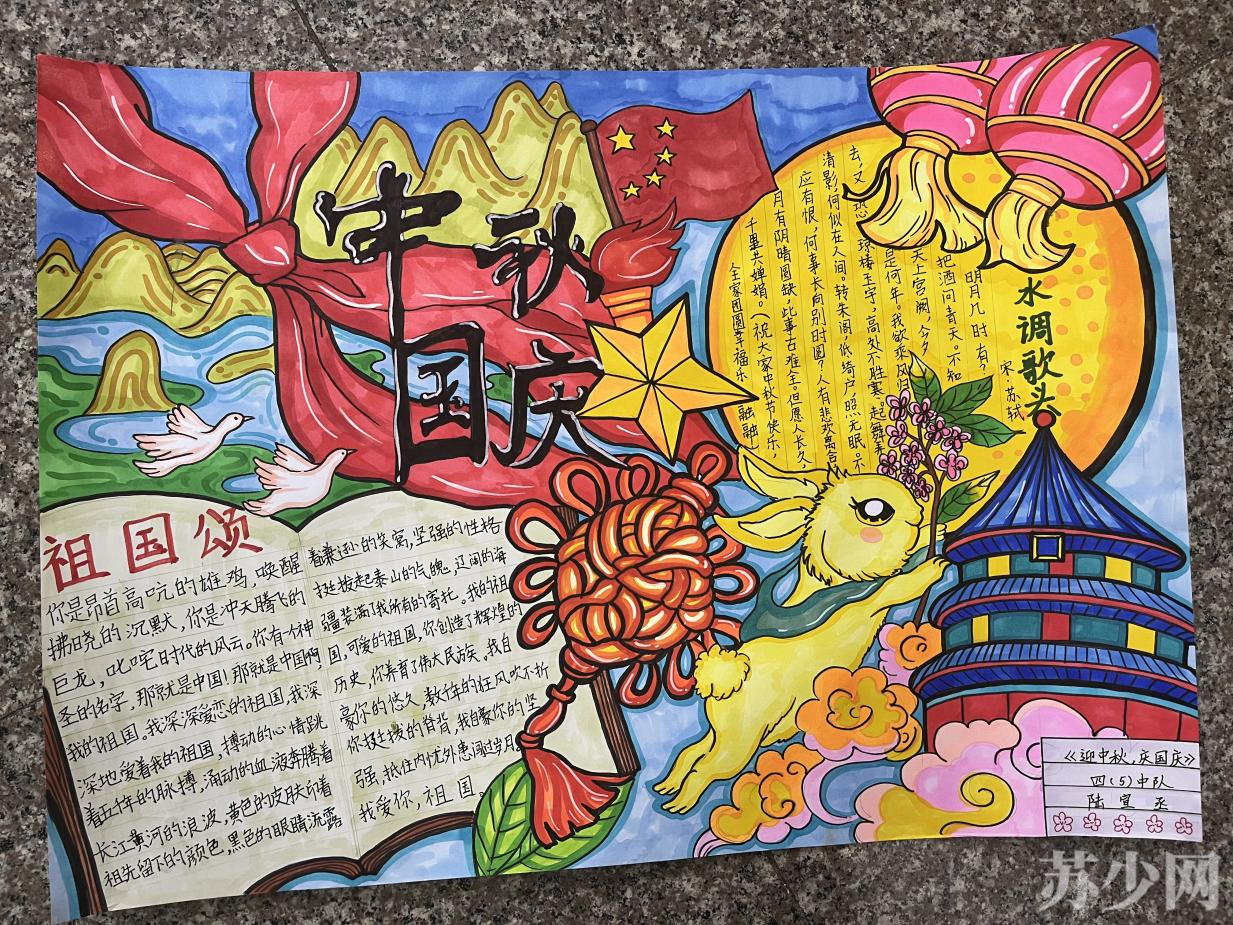 中秋
国庆
水调歌头
宋·苏轼
明月几时有？
把酒问青天。不知
天上宫阙，今夕
是何年。我欲乘风归
去，又恐琼楼玉宇，高处不胜寒。起舞弄
清影，何似在人间。转朱阁，低绮户，照无眠。不
应有恨，何事长向别时圆？人有悲欢离合，
月有阴晴圆缺，此事古难全。但愿人长久，
千里共婵娟。（祝大家中秋节快乐，
全家团圆幸福乐融融
祖国颂
你是昂首高吭的雄鸡，唤醒
拂晓的沉默，你是冲天腾飞的
巨龙，叱咤时代的风云。你有一个神
圣的名字，那就是中国！那就是中国啊
我的祖国，我深深爱恋的祖国，我深
深地爱着我的祖国，搏动的心情跳
着五千年的脉搏，涌动的血液奔腾着
长江黄河的浪波，黄色的皮肤印着
祖先留下的颜色，黑色的眼睛流露
着谦逊的笑窝，坚强的性格
挺拔起泰山的气魄，辽阔的海
疆装满了我所有的寄托。我的祖
国，可爱的祖国，你创造了辉煌的
历史，你养育了伟大民族。我自
豪你的悠久，数千年的狂风吹不折
你挺拨的脊背，我自豪你的坚
强，抵住内忧外患闯过岁月。
我爱你，祖国。
《迎中秋，庆国庆》
四(5)中队
陆宣丞
苏少网